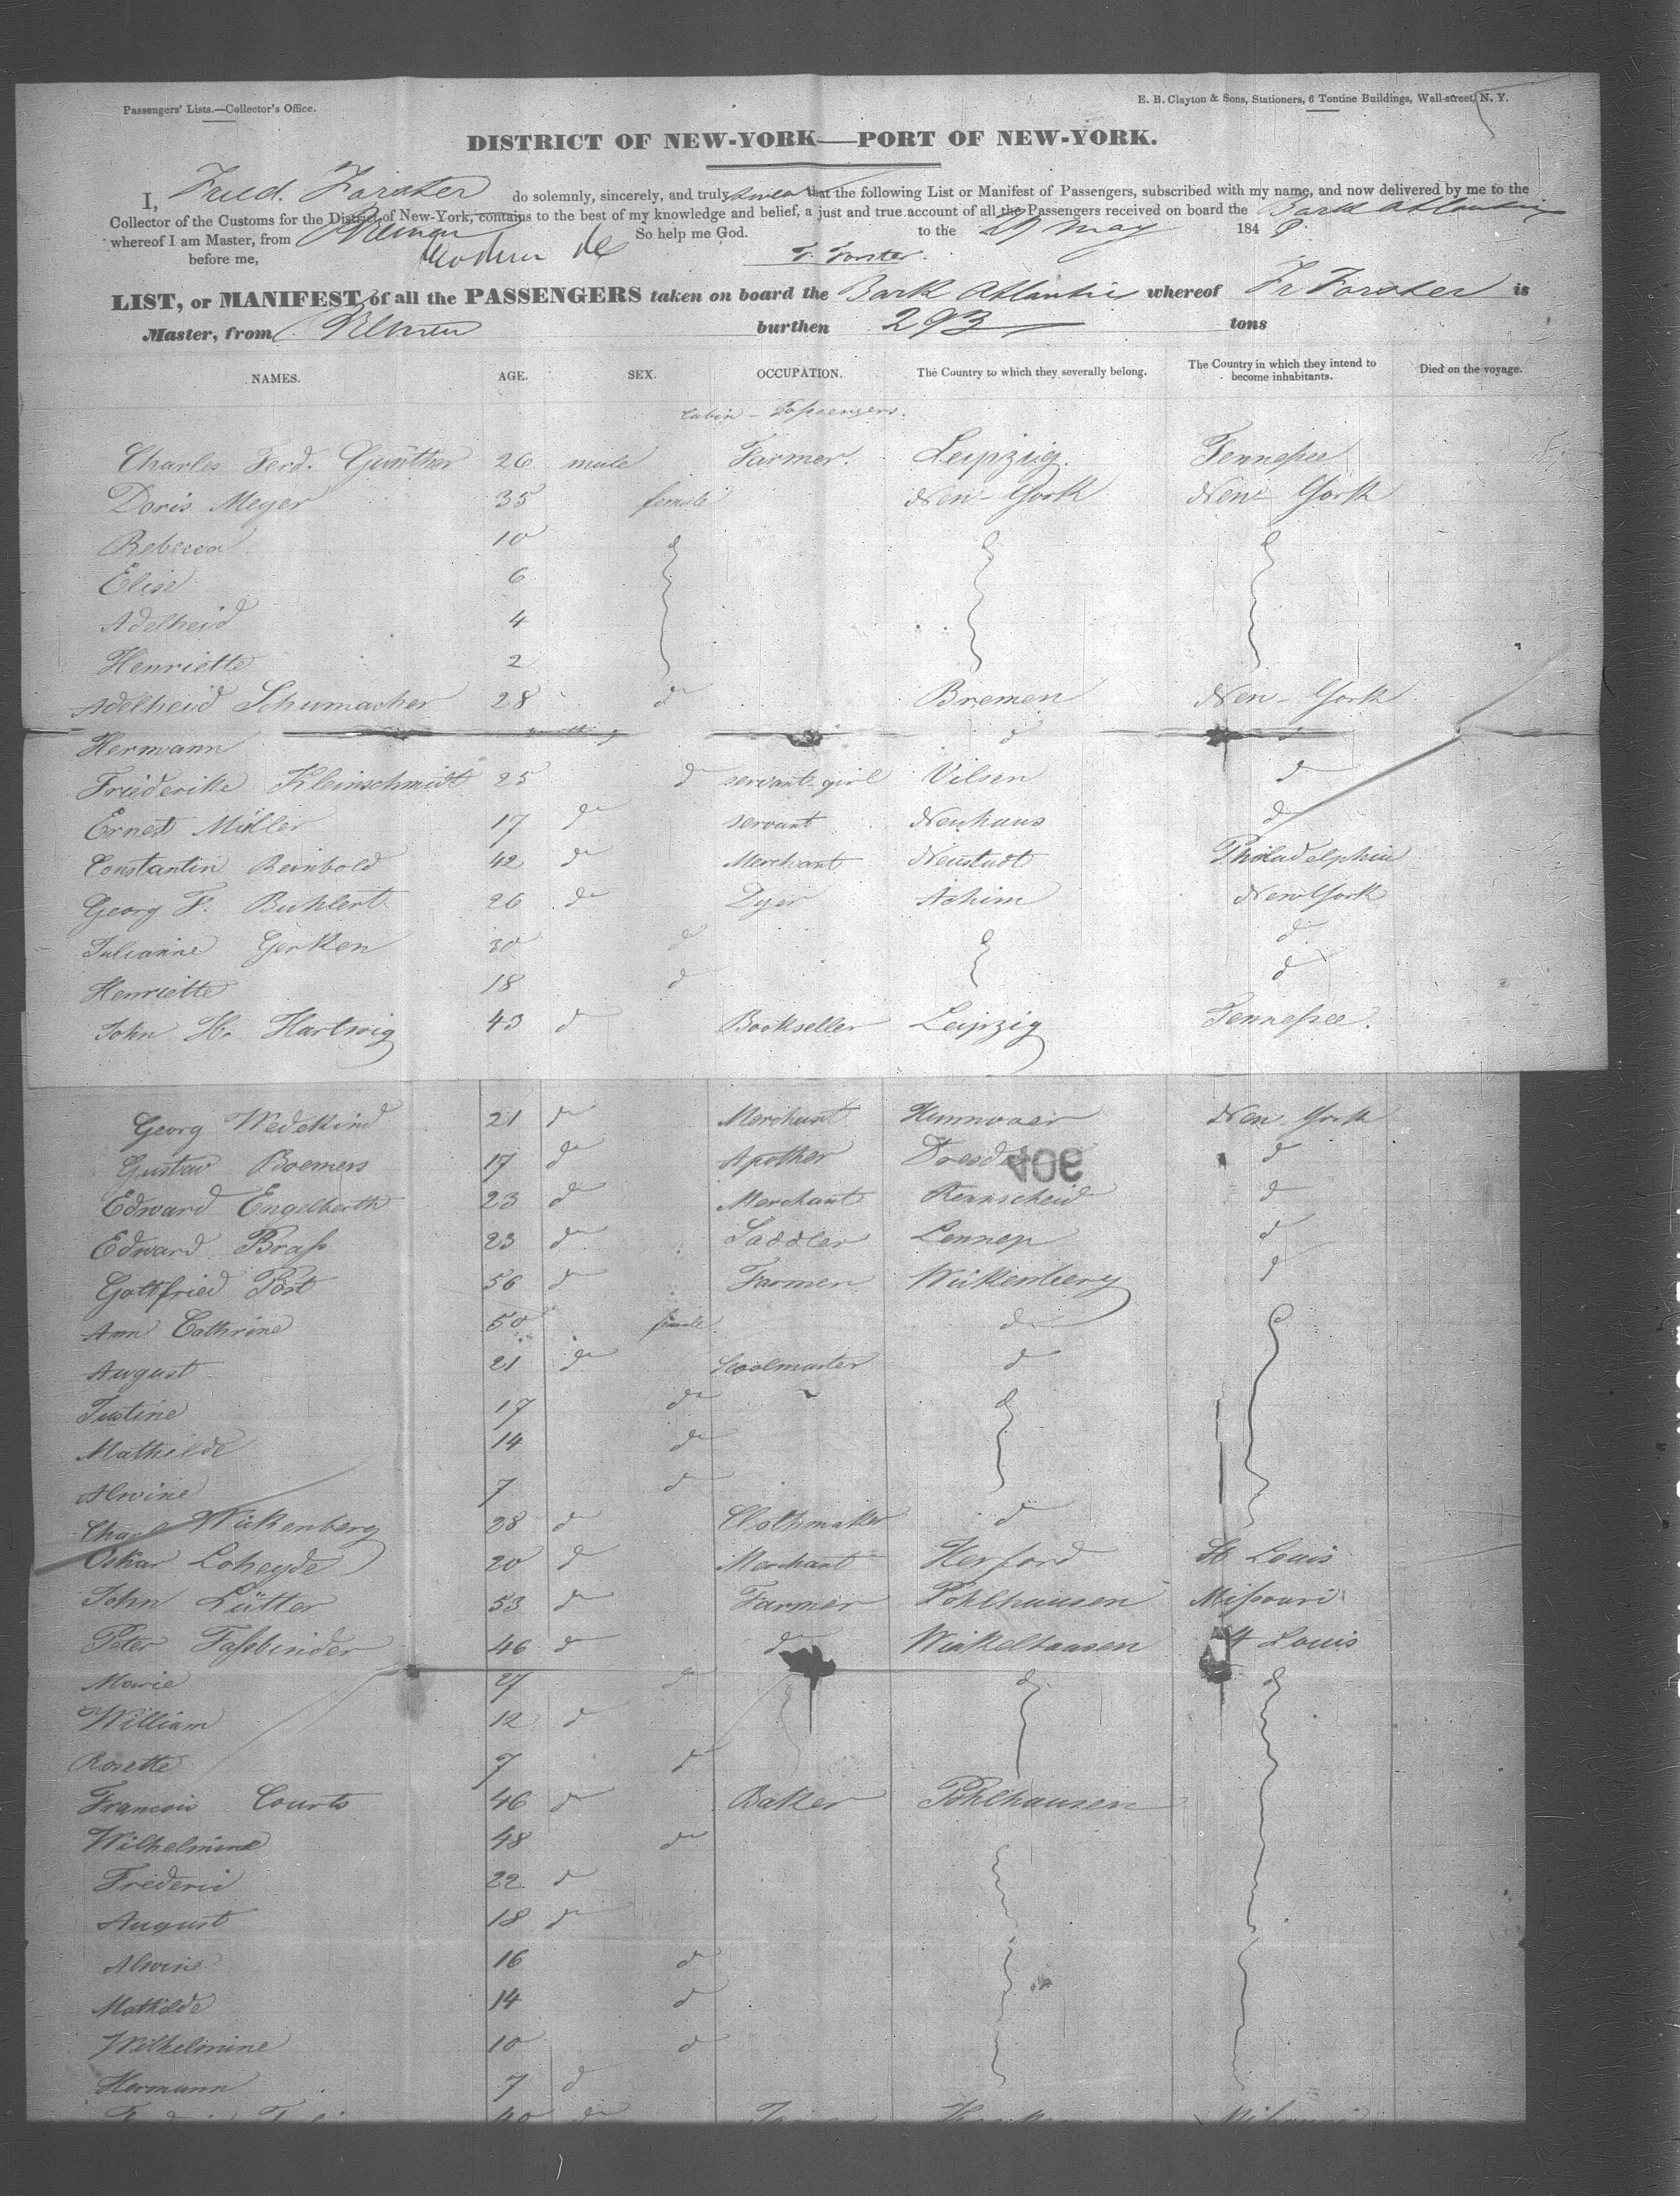 Passengers' Lists.—Collector's Office.
E. B. Clayton & Sons, Stationers, 6 Tontine Buildings, Wall-street, N. Y.
DISTRICT OF NEW-YORK—PORT OF NEW-YORK.
I, Fred. Forster do solemnly, sincerely, and truly swear that the following List or Manifest of Passengers, subscribed with my name, and now delivered by me to the
Collector of the Customs for the District of New-York, contains to the best of my knowledge and belief, a just and true account of all the Passengers received on board the Bark Atlantic
whereof I am Master, from Bremen So help me God. to the 29 May 184
before me, F. Forster.
LIST, or MANIFEST, of all the PASSENGERS taken on board the Bark Atlantic whereof Fr Forster is
Master, from Bremen burthen 293 tons
NAMES. AGE. SEX. OCCUPATION. The Country to which they severally belong. The Country in which they intend to become inhabitants. Died on the voyage.
Cabin - Passengers.
Charles Ferd. Günther 26 male Farmer. Leipzig. Tennessee
Doris Meyer 35 female New-York New-York
Rebecca 10
Elise 6
Adelheid 4
Henriette 2
Adelheid Schumacher 28 do Bremen New-York
Hermann d
Friederike Kleinschmidt 25 d servant-girl Vilsen d
Ernest Müller 17 do servant Neuhaus d
Constantin Reinbold 42 do Merchant Neustadt Philadelphia
Georg F. Buhlert 26 do Dyer Achim New York
Julianne Gerken 30 d d
Henriette 18 d d
John H. Hartwig 43 d Bookseller Leipzig Tennessee.
Georg Wedekind 21 do Merchant Hannover New-York
Gustav Boemers 17 do Apother Dresd d
904
Edward Engelberth 23 d Merchant Remscheid d
Edward Brass 23 do Saddler Lennep d
Gottfried Post 56 d Farmer Wükenberg d
Ann Cathrine 50 female d
August 21 do Scoolmaster d
Justine 17 do
Mathilde 14 do
Alwine 7 d
Charl Wükenberg 28 d Clothmaker d
Oskar Loheyde 20 d Merchant Herford St Louis
John Lütter 53 do Farmer Pohlhausen Missouri
Peter Fassbinder 46 d do Winkelhausen St Louis
Marie 27 do
William 12 d
Rosette 7 d
Francois Courts 46 do Baker Pohlhausen
Wilhelmine 48 do
Frederic 22 d
August 18 do
Alwine 16 d
Mathilde 14 d
Wilhelmine 10 d
Hermann 7 d